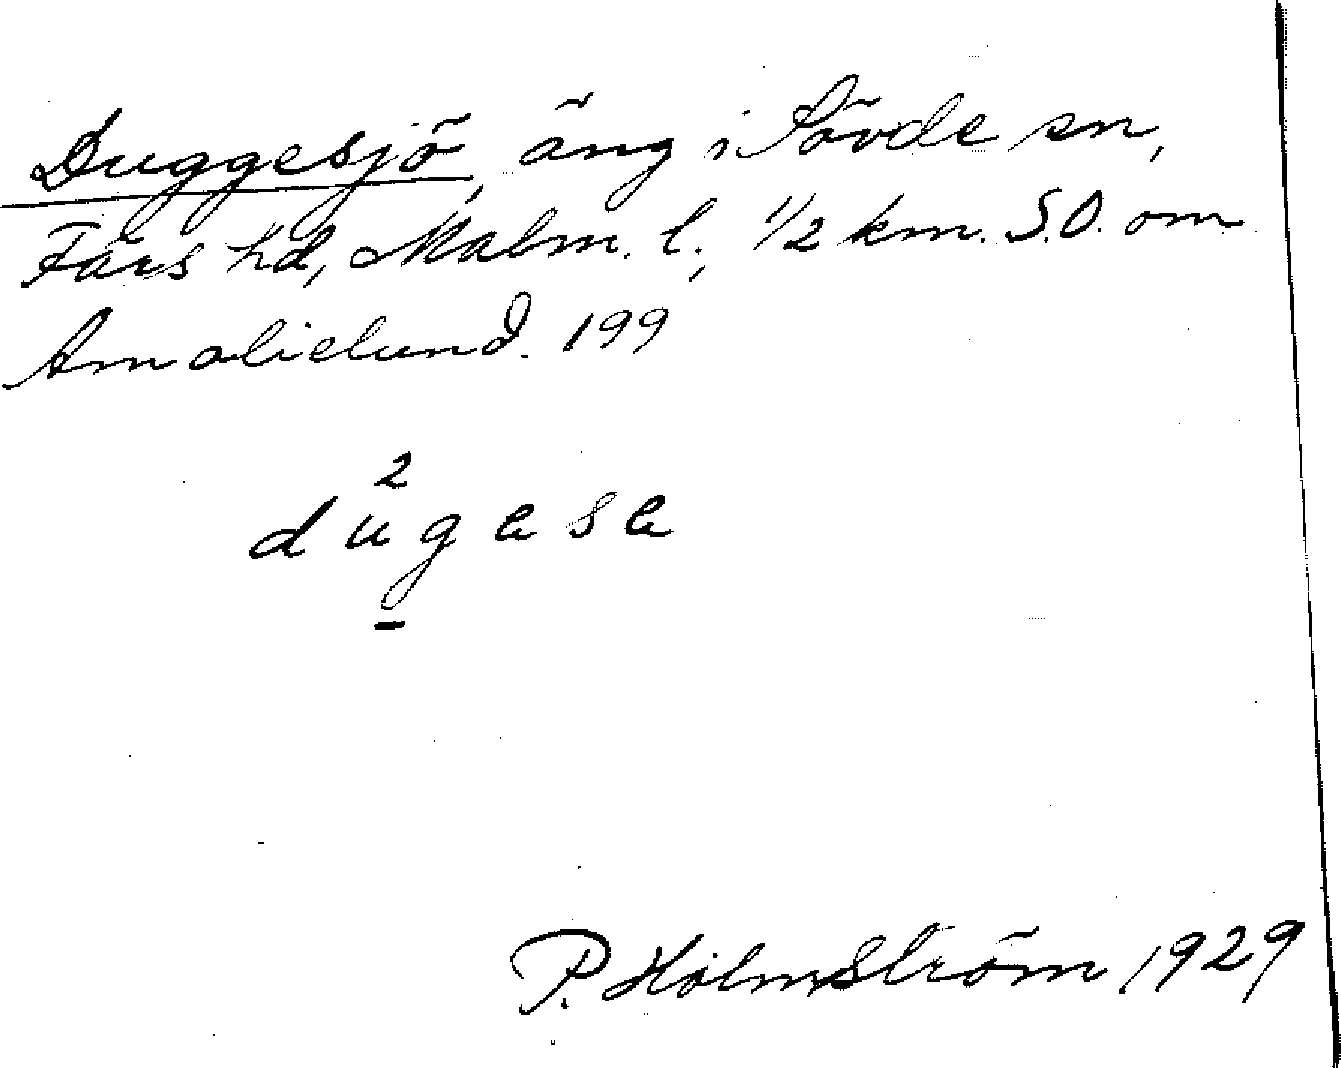 Duggesjö, äng i Sövde sn,
Färs hd, Malm. l., 1/2 km. S.O. om
Amalielund. 199
2
dugasa
P. Holmström 1929